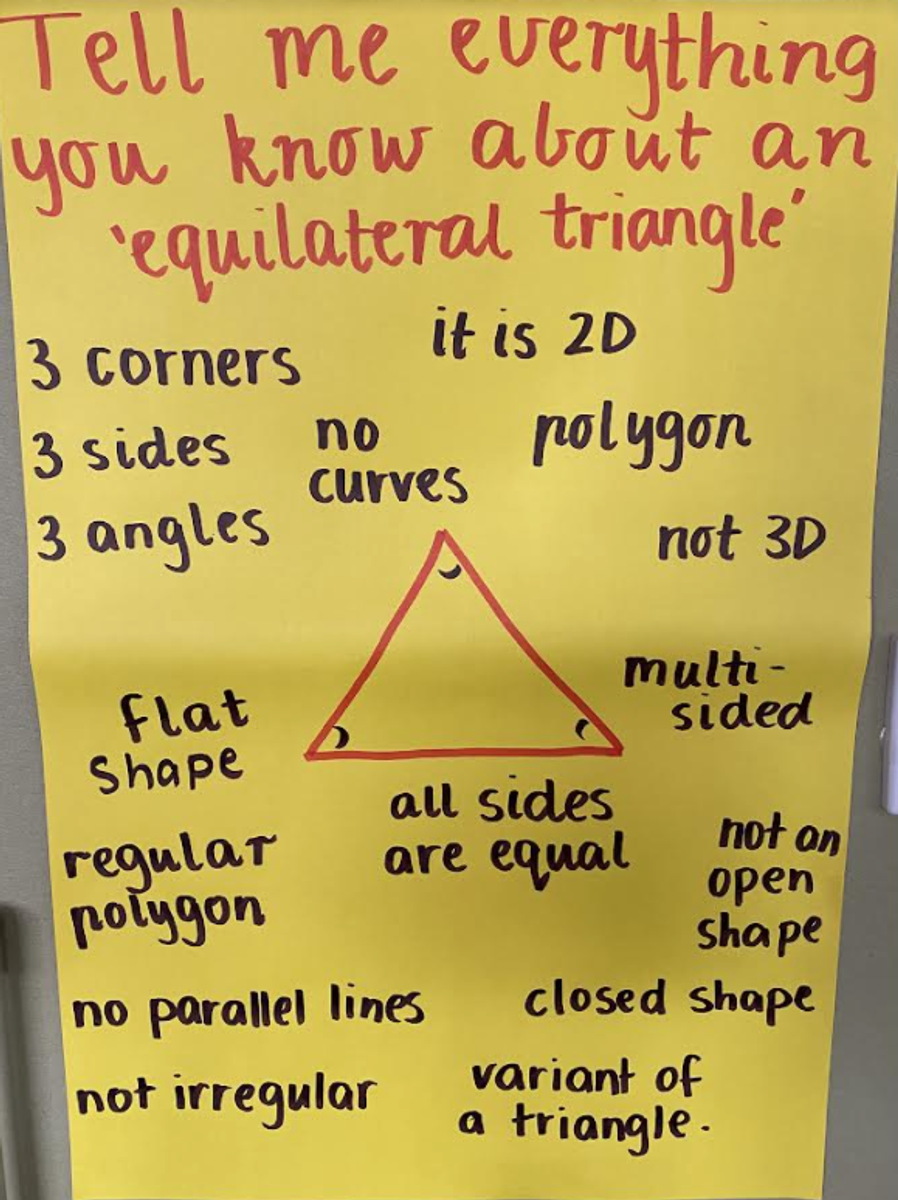 Tell me everything
you know about an
'equilateral triangle'
3 corners
it is 2D
3 sides
no
curves
polygon
3 angles
not 3D
multi-
sided
flat
shape
all sides
are equal
regular
polygon
not an
open
shape
no parallel lines
closed shape
not irregular
variant of
a triangle.